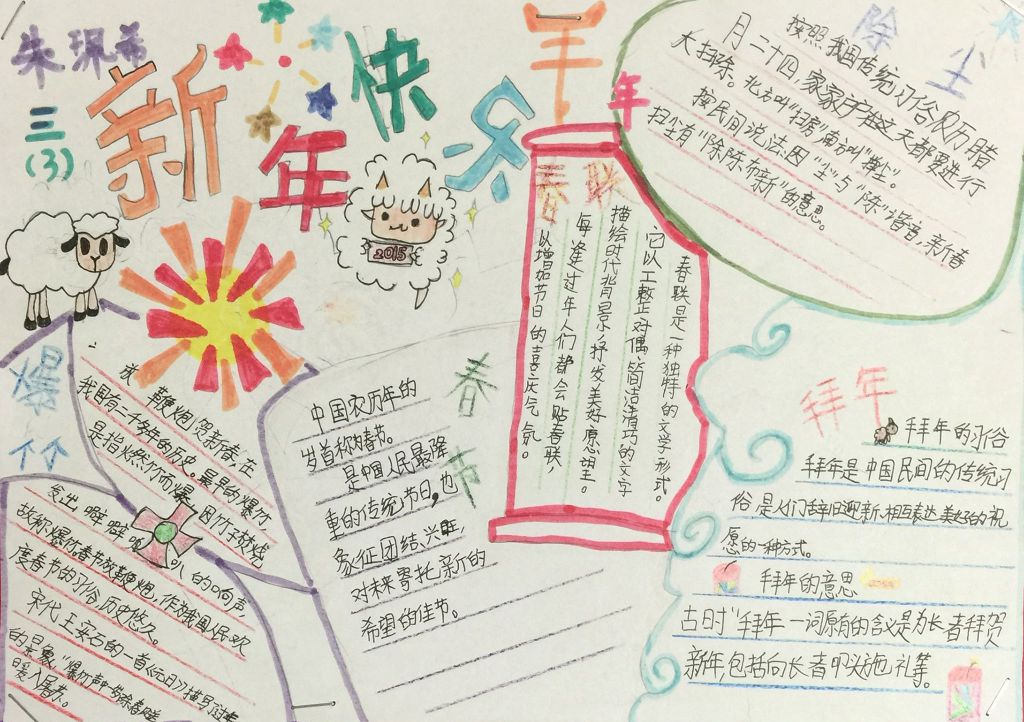 朱珮希
三(3)
新年快乐
羊年
2015
除尘
按照我国传统习俗农历腊
月二十四,家家户户在这天都要进行
大扫除。北方叫"扫房"南方叫"掸尘"。
按民间说法:因"尘"与"陈"谐音,新春
扫尘有"除陈布新"的意思。
春联
春联是一种独特的文学形式。
它以工整、对偶、简洁、清巧的文字
描绘时代背景,抒发美好愿望。
每逢过年人们都会贴春联,
以增加节日的喜庆气氛。
爆竹
放鞭炮贺新春,在
我国有二千多年的历史。最早的爆竹
是指燃竹而爆,因竹子焚烧
发出噼噼啪叭的响声,
故称爆竹。春节放鞭炮,作为我国人民欢
度春节的习俗,历史悠久。
宋代王安石的一首《元日》描写了过年
的景象,"爆竹声中一岁除,春风送
暖入屠苏。
春节
中国农历年的
岁首称为春节。
是中国人民最隆
重的传统节日,也
象征团结、兴旺,
对未来寄托新的
希望的佳节。
拜年
拜年的习俗
拜年是中国民间的传统习
俗,是人们辞旧迎新、相互表达美好的祝
愿的一种方式。
拜年的意思
古时"拜年一词原有的含义是为长者拜贺
新年,包括向长者叩头施礼等。